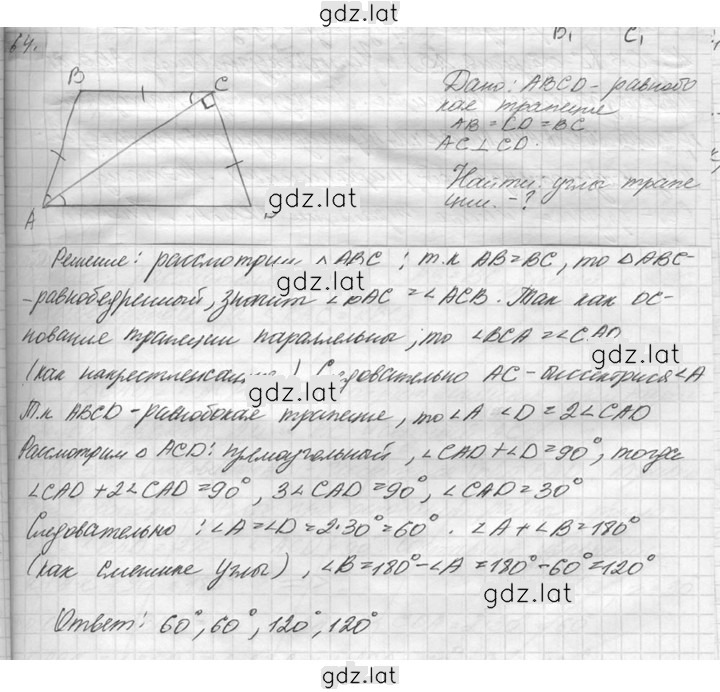 gdz.lat
64.
B₁ C₁
B C
Дано: ABCD - равнобо
кая трапеция
AB = CD = BC
AC ⊥ CD.
Найти: углы трапе
ции. - ?
gdz.lat
A
Решение: рассмотрим △ ABC ; т.к AB = BC, то △ABC -
gdz.lat
- равнобедренный, значит ∠BAC = ∠ACB. Так как ос-
нование трапеции параллельны, то ∠BCA = ∠CAD
gdz.lat
(как накрестлежащие) Следовательно AC - биссектриса ∠A
gdz.lat
Т.к ABCD - равнобокая трапеция, то ∠A ∠D = 2∠CAD
Рассмотрим △ ACD: прямоугольный, ∠CAD + ∠D = 90°, тогда
∠CAD + 2∠CAD = 90°, 3∠CAD = 90°, ∠CAD = 30°
Следовательно : ∠A = ∠D = 2·30° = 60°. ∠A + ∠B = 180°
(как смежные углы), ∠B = 180° - ∠A = 180° - 60° = 120°
gdz.lat
Ответ: 60°, 60°, 120°, 120°
gdz.lat